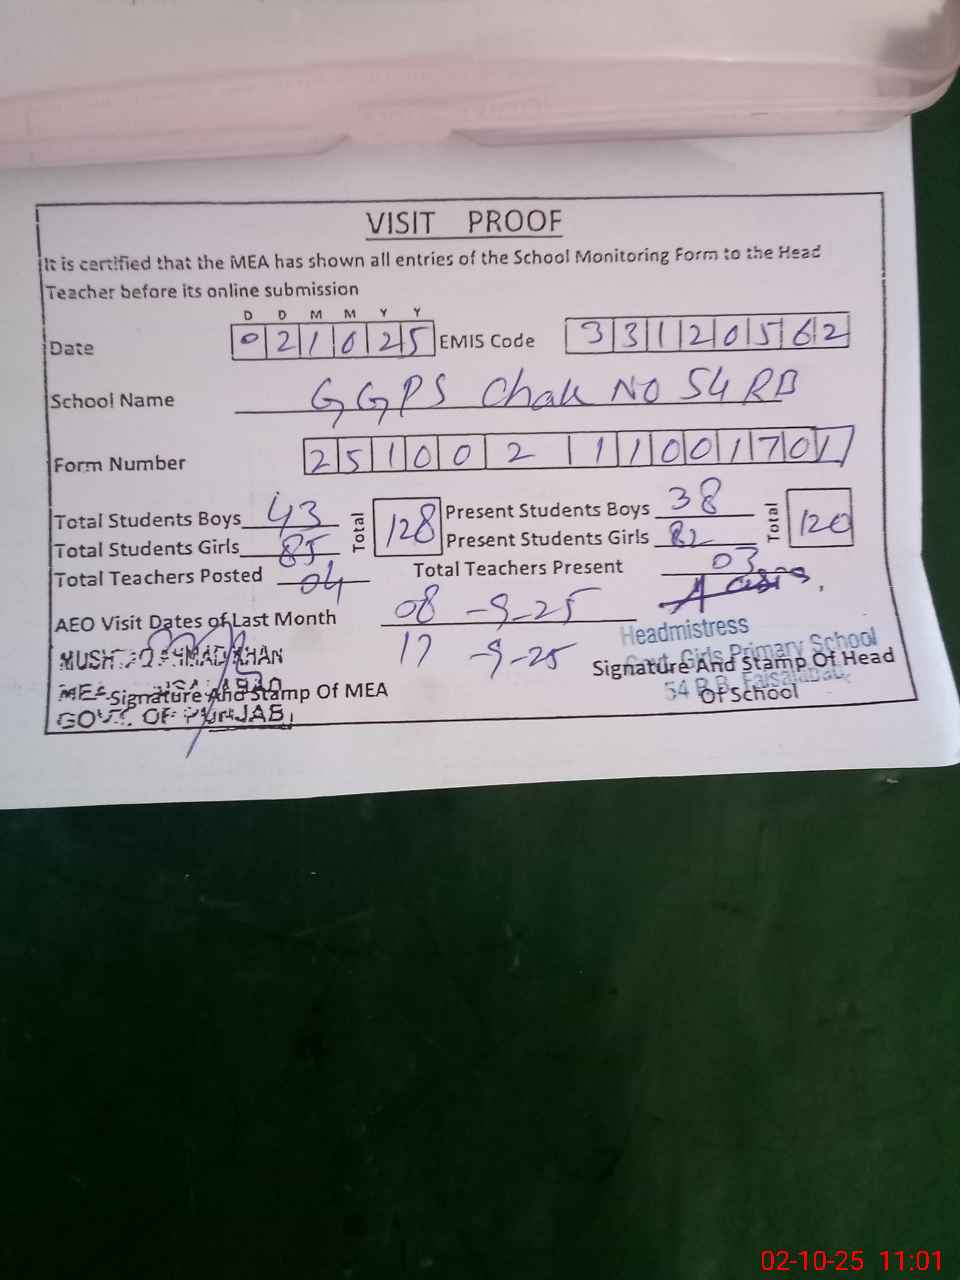 VISIT PROOF
It is certified that the MEA has shown all entries of the School Monitoring Form to the Head
Teacher before its online submission
D D M M Y Y
Date 0 2 1 0 2 5 EMIS Code 3 3 1 2 0 5 6 2
School Name GGPS Chak NO 54 RB
Form Number 2 5 1 0 0 2 1 1 0 0 1 7 0 1
Total Students Boys 43 Total 128 Present Students Boys 38 Total 120
Total Students Girls 85 Present Students Girls 82
Total Teachers Posted 04 Total Teachers Present 03
AEO Visit Dates of Last Month 08 -9-25
17 -9-25
Headmistress
Govt. Girls Primary School
54 R.B. Faisalabad.
Signature And Stamp Of Head
Of School
AHMAD KHAN
Signature And Stamp Of MEA
GOVT. OF PUNJAB
02-10-25 11:01